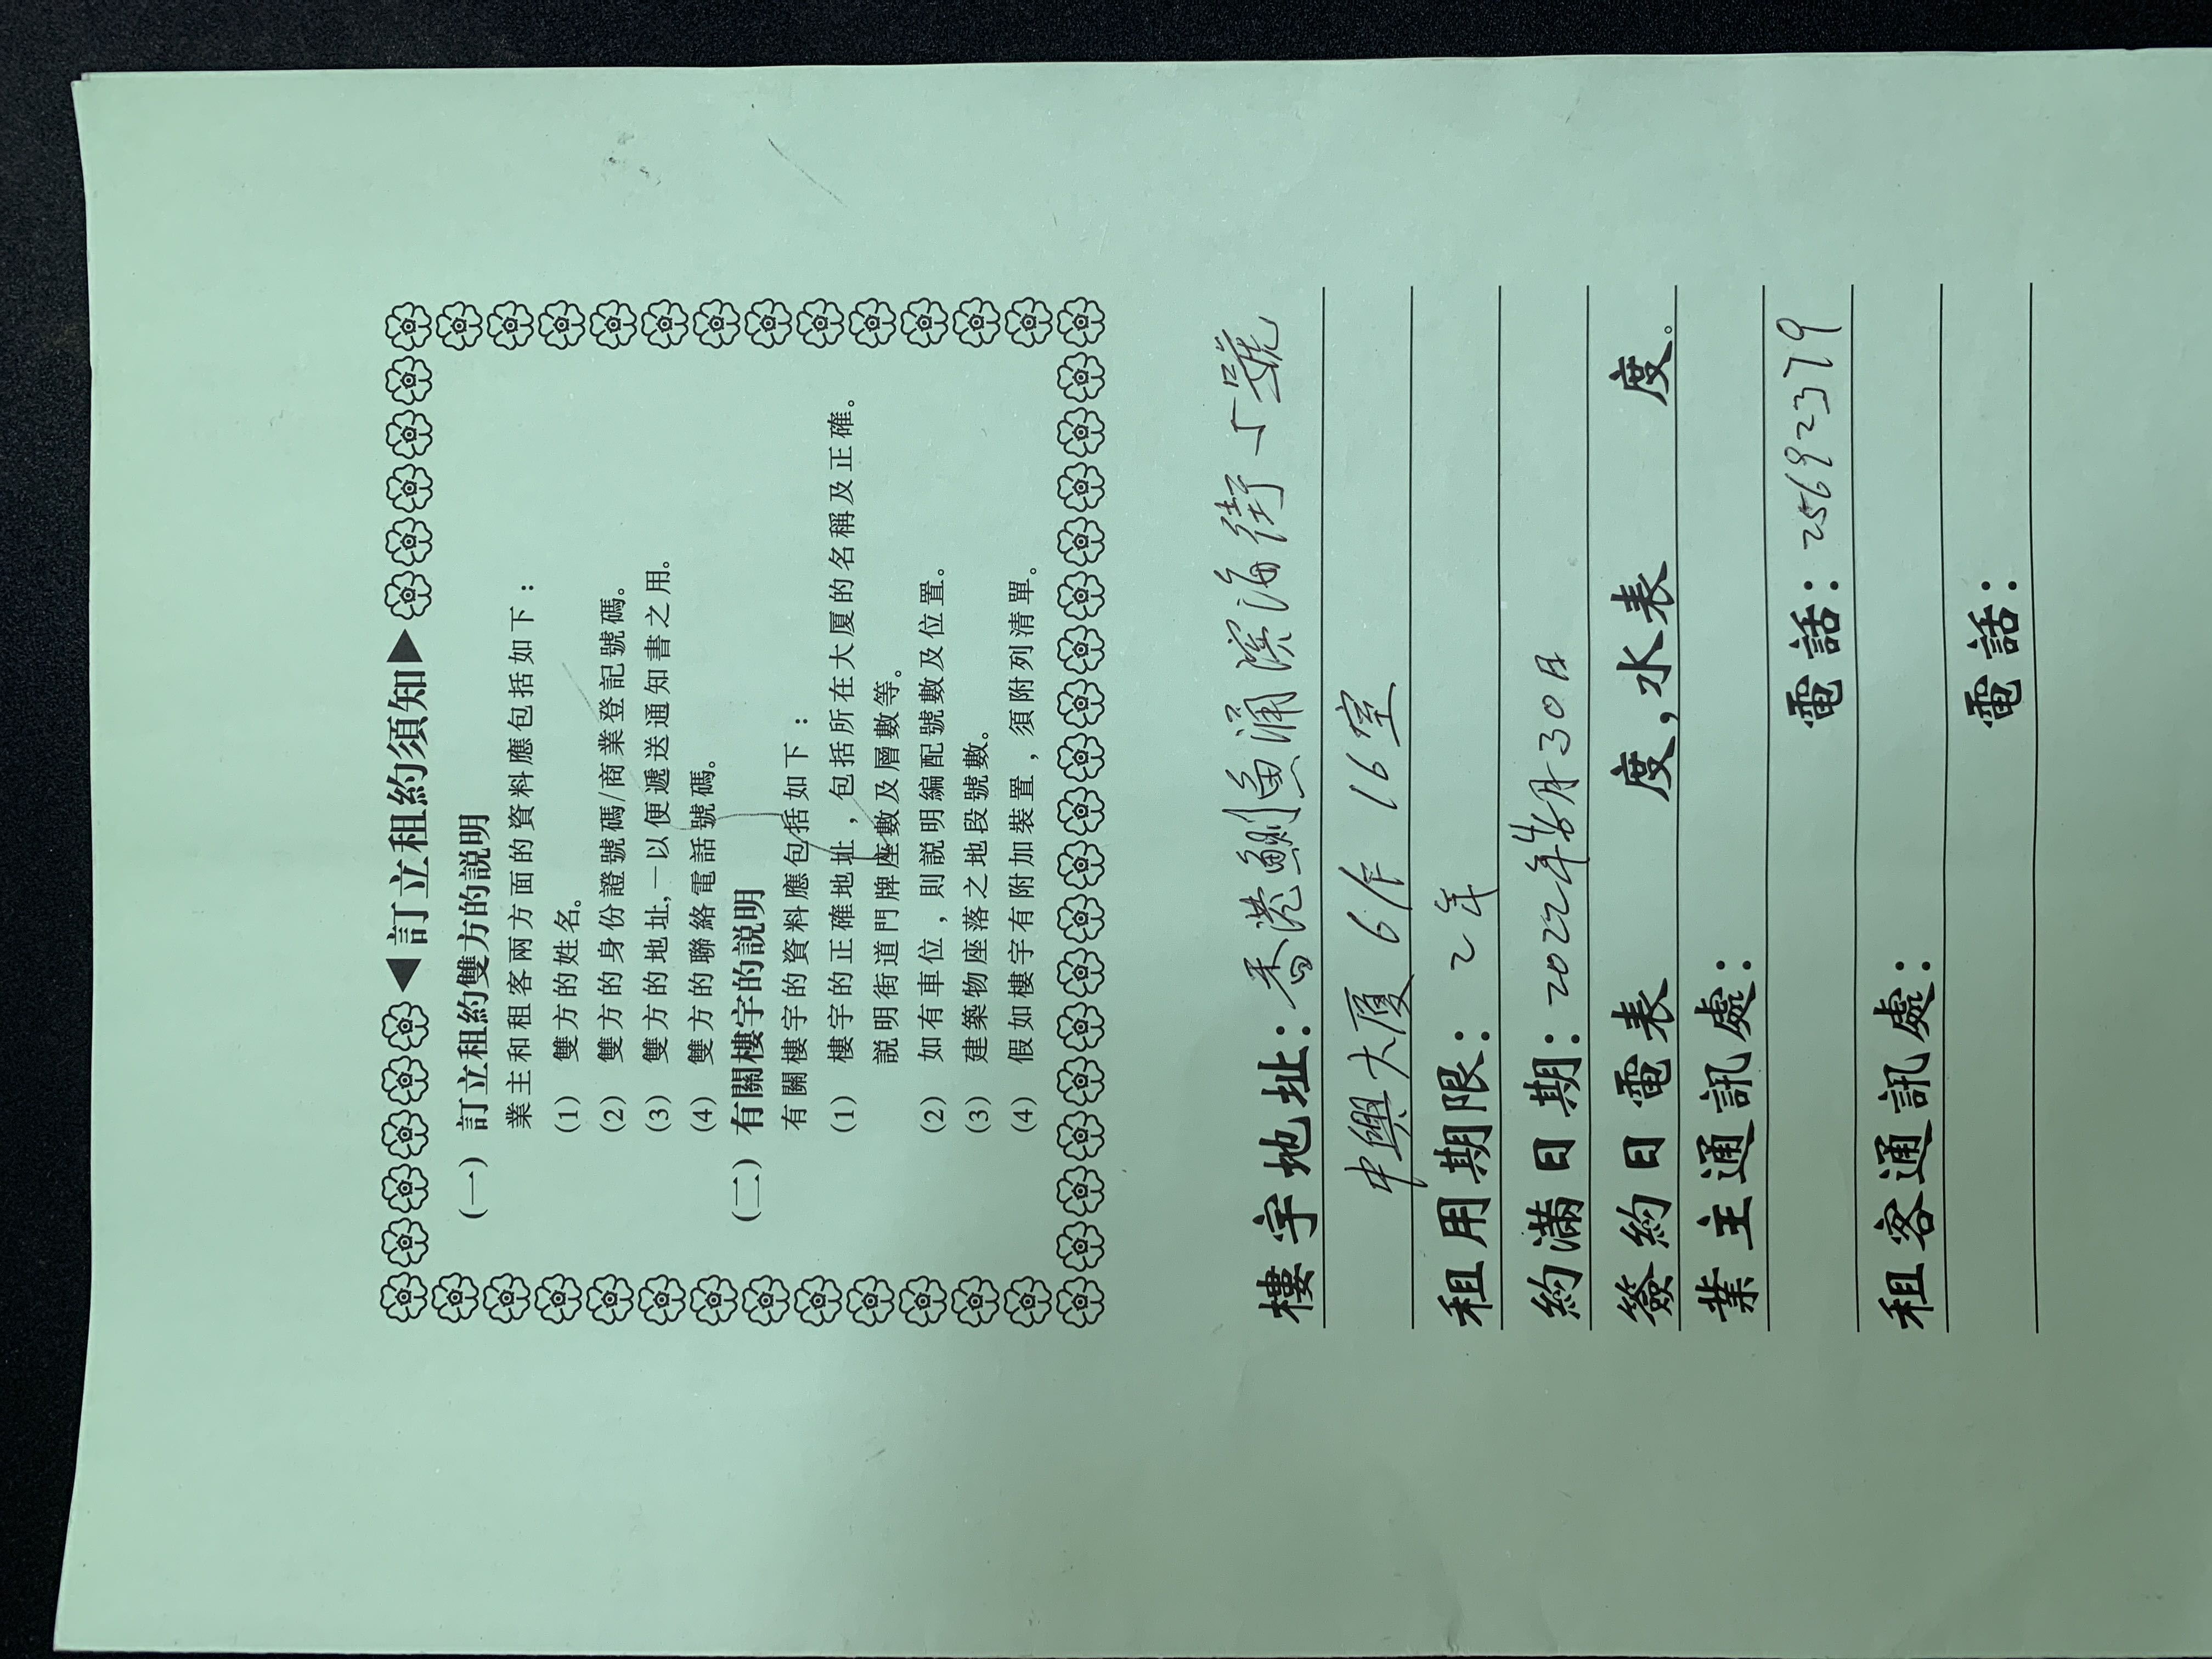 ◀訂立租約須知▶
(一) 訂立租約雙方的説明
業主和租客兩方面的資料應包括如下：
(1) 雙方的姓名。
(2) 雙方的身份證號碼/商業登記號碼。
(3) 雙方的地址,一以便遞送通知書之用。
(4) 雙方的聯絡電話號碼。
(二) 有關樓宇的説明
有關樓宇的資料應包括如下：
(1) 樓宇的正確地址，包括所在大厦的名稱及正確。
説明街道門牌座數及層數等。
(2) 如有車位，則説明編配號數及位置。
(3) 建築物座落之地段號數。
(4) 假如樓宇有附加裝置，須附列清單。
樓宇地址：香港鰂魚涌濱海街5號
中興大厦 6 16室
租用期限：2年
約滿日期：2022年 月30日
簽約日電表 度，水表 度。
業主通訊處：
電話：25692379
租客通訊處：
電話：